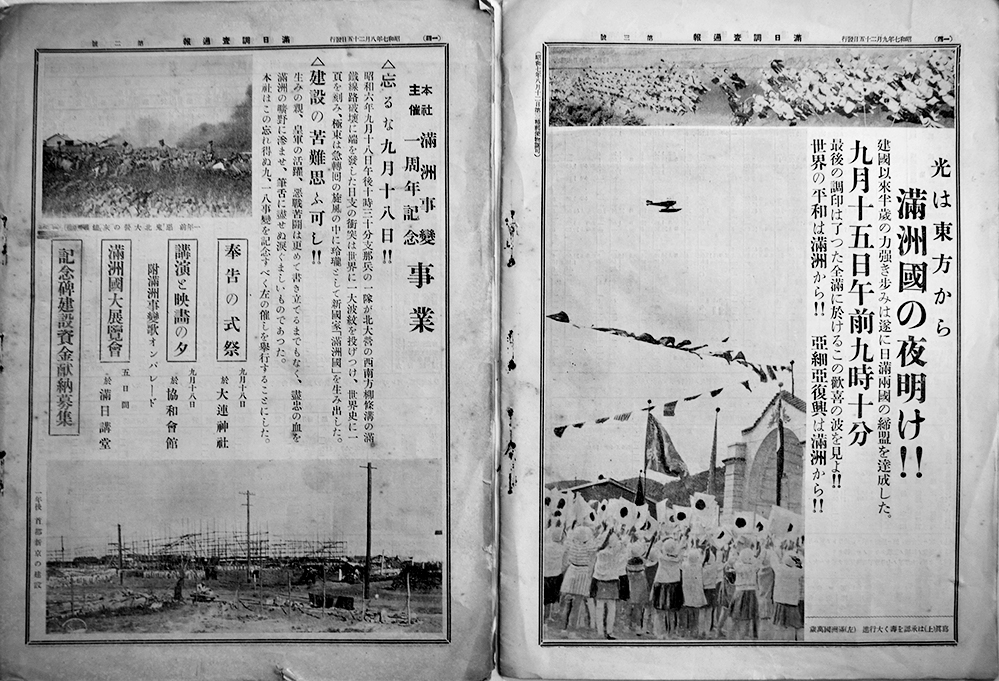 (一四)
昭和七年九月二十五日發行
滿日調査週報
第三號
光は東方から
滿洲國の夜明け!!
建國以來半歲の力强き步みは遂に日滿兩國の締盟を達成した。
九月十五日午前九時十分
最後の調印は了つた全滿に於けるこの歡喜の波を見よ!!
世界の平和は滿洲から!! 亞細亞復興は滿洲から!!
寫眞(上)は承認を壽く大行進 (左)滿洲國萬歲
(一四)
昭和七年八月二十五日發行
滿日調査週報
第二號
本社主催 滿洲事變一周年記念 事業
△忘るな九月十八日!!
昭和六年九月十八日午後十時三十分支那兵の一隊が北大營の西南方柳條溝の滿
鐵線路破壞に端を發した日支の衝突は世界に一大波紋を投げつけ、世界史に一
頁を刻み、極東は急轉回の旋風の中に玲瓏として新國家「滿洲國」を生み出した。
△建設の苦難思ふ可し!!
生みの親、皇軍の活躍、惡戰苦鬪は更めて書き立てるまでもなく、盡忠の血を
滿洲の曠野に滲ませ、筆舌に盡せぬ淚ぐましいものであつた。
本社はこの忘れ得ぬ九、一八事變を記念すべく左の催しを擧行することにした。
奉告の式祭
九月十八日
於 大連神社
講演と映畫の夕
附滿洲事變歌オンパレード
九月十八日
於 協和會館
滿洲國大展覽會
五日間
於 滿日講堂
記念碑建設資金獻納募集
一年後 首都新京の建設